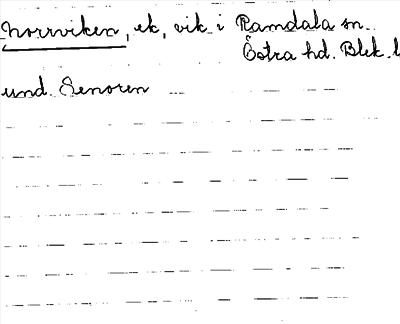 Norrviken, ek, vik i Ramdala sn.
Östra hd. Blek. l
und. Senoren